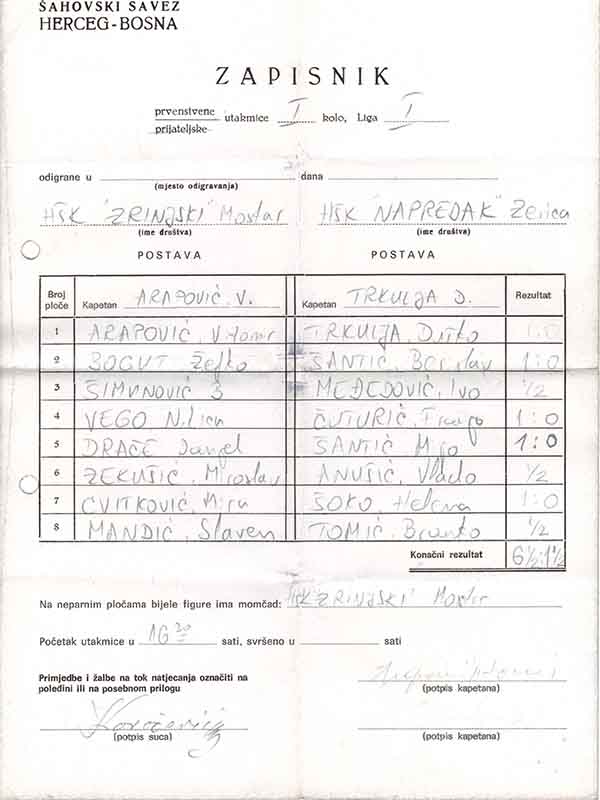 ŠAHOVSKI SAVEZ
HERCEG-BOSNA
ZAPISNIK
prvenstvene
prijateljske
utakmice I kolo, Liga I
odigrane u dana
(mjesto odigravanja)
HŠK "ZRINJSKI" Mostar HŠK "NAPREDAK" Zenica
(ime društva) (ime društva)
POSTAVA POSTAVA
Broj ploče Kapetan ARAPOVIĆ V. Kapetan TRKULJA D. Rezultat
1 ARAPOVIĆ, Vitomir TRKULJA, Duško 1:0
2 BOGUT Željko ŠANTIĆ, Borislav 1:0
3 ŠIMUNOVIĆ Š MEĐEDOVIĆ, Ivo 1/2
4 VEGO Nilica ČUTURIĆ, Franjo 1:0
5 DRAČE Danjel ŠANTIĆ Mijo 1:0
6 ZEKUŠIĆ, Miroslav ANUŠIĆ, Vlado 1/2
7 CVITKOVIĆ, Mira ŠOKO, Helena 1:0
8 MANDIĆ, Slaven TOMIĆ, Branko 1/2
Konačni rezultat 6 1/2:1 1/2
Na neparnim pločama bijele figure ima momčad: HŠK "ZRINJSKI" Mostar
Početak utakmice u 16 30 sati, svršeno u sati
Primjedbe i žalbe na tok natjecanja označiti na
poleđini ili na posebnom prilogu
(potpis kapetana)
(potpis suca) (potpis kapetana)